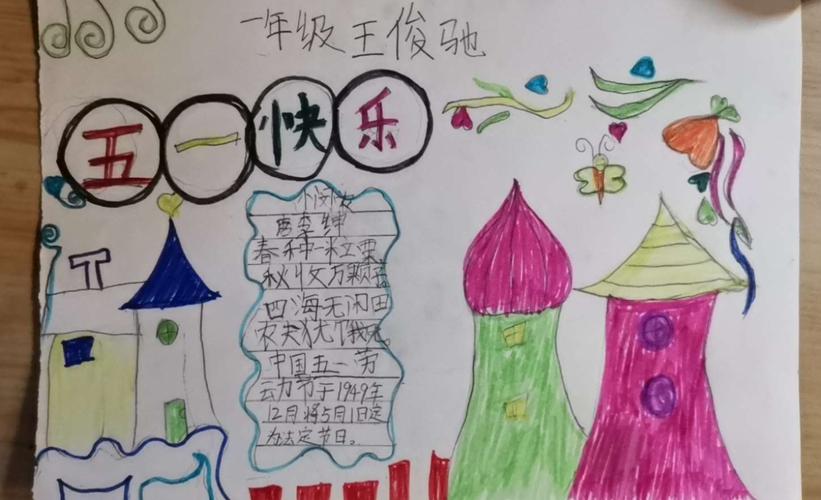 一年级 王俊驰
五一快乐
唐李绅
春种一粒粟
秋收万颗子
四海无闲田
农夫犹饿死。
中国五一劳
动节于1949年
12月将5月1日定
为法定节日。